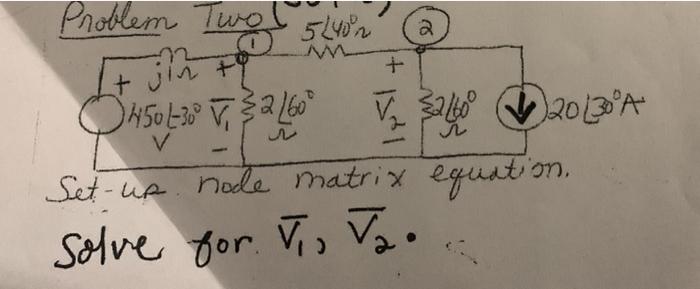 Problem Two (
① 5∠40°Ω ②
+ j1Ω + +
450∠-30° V V̄₁ 2∠60° Ω V̄₂ 2∠60° Ω 20∠30°A
- -
Set-up node matrix equation.
Solve for V̄₁, V̄₂.